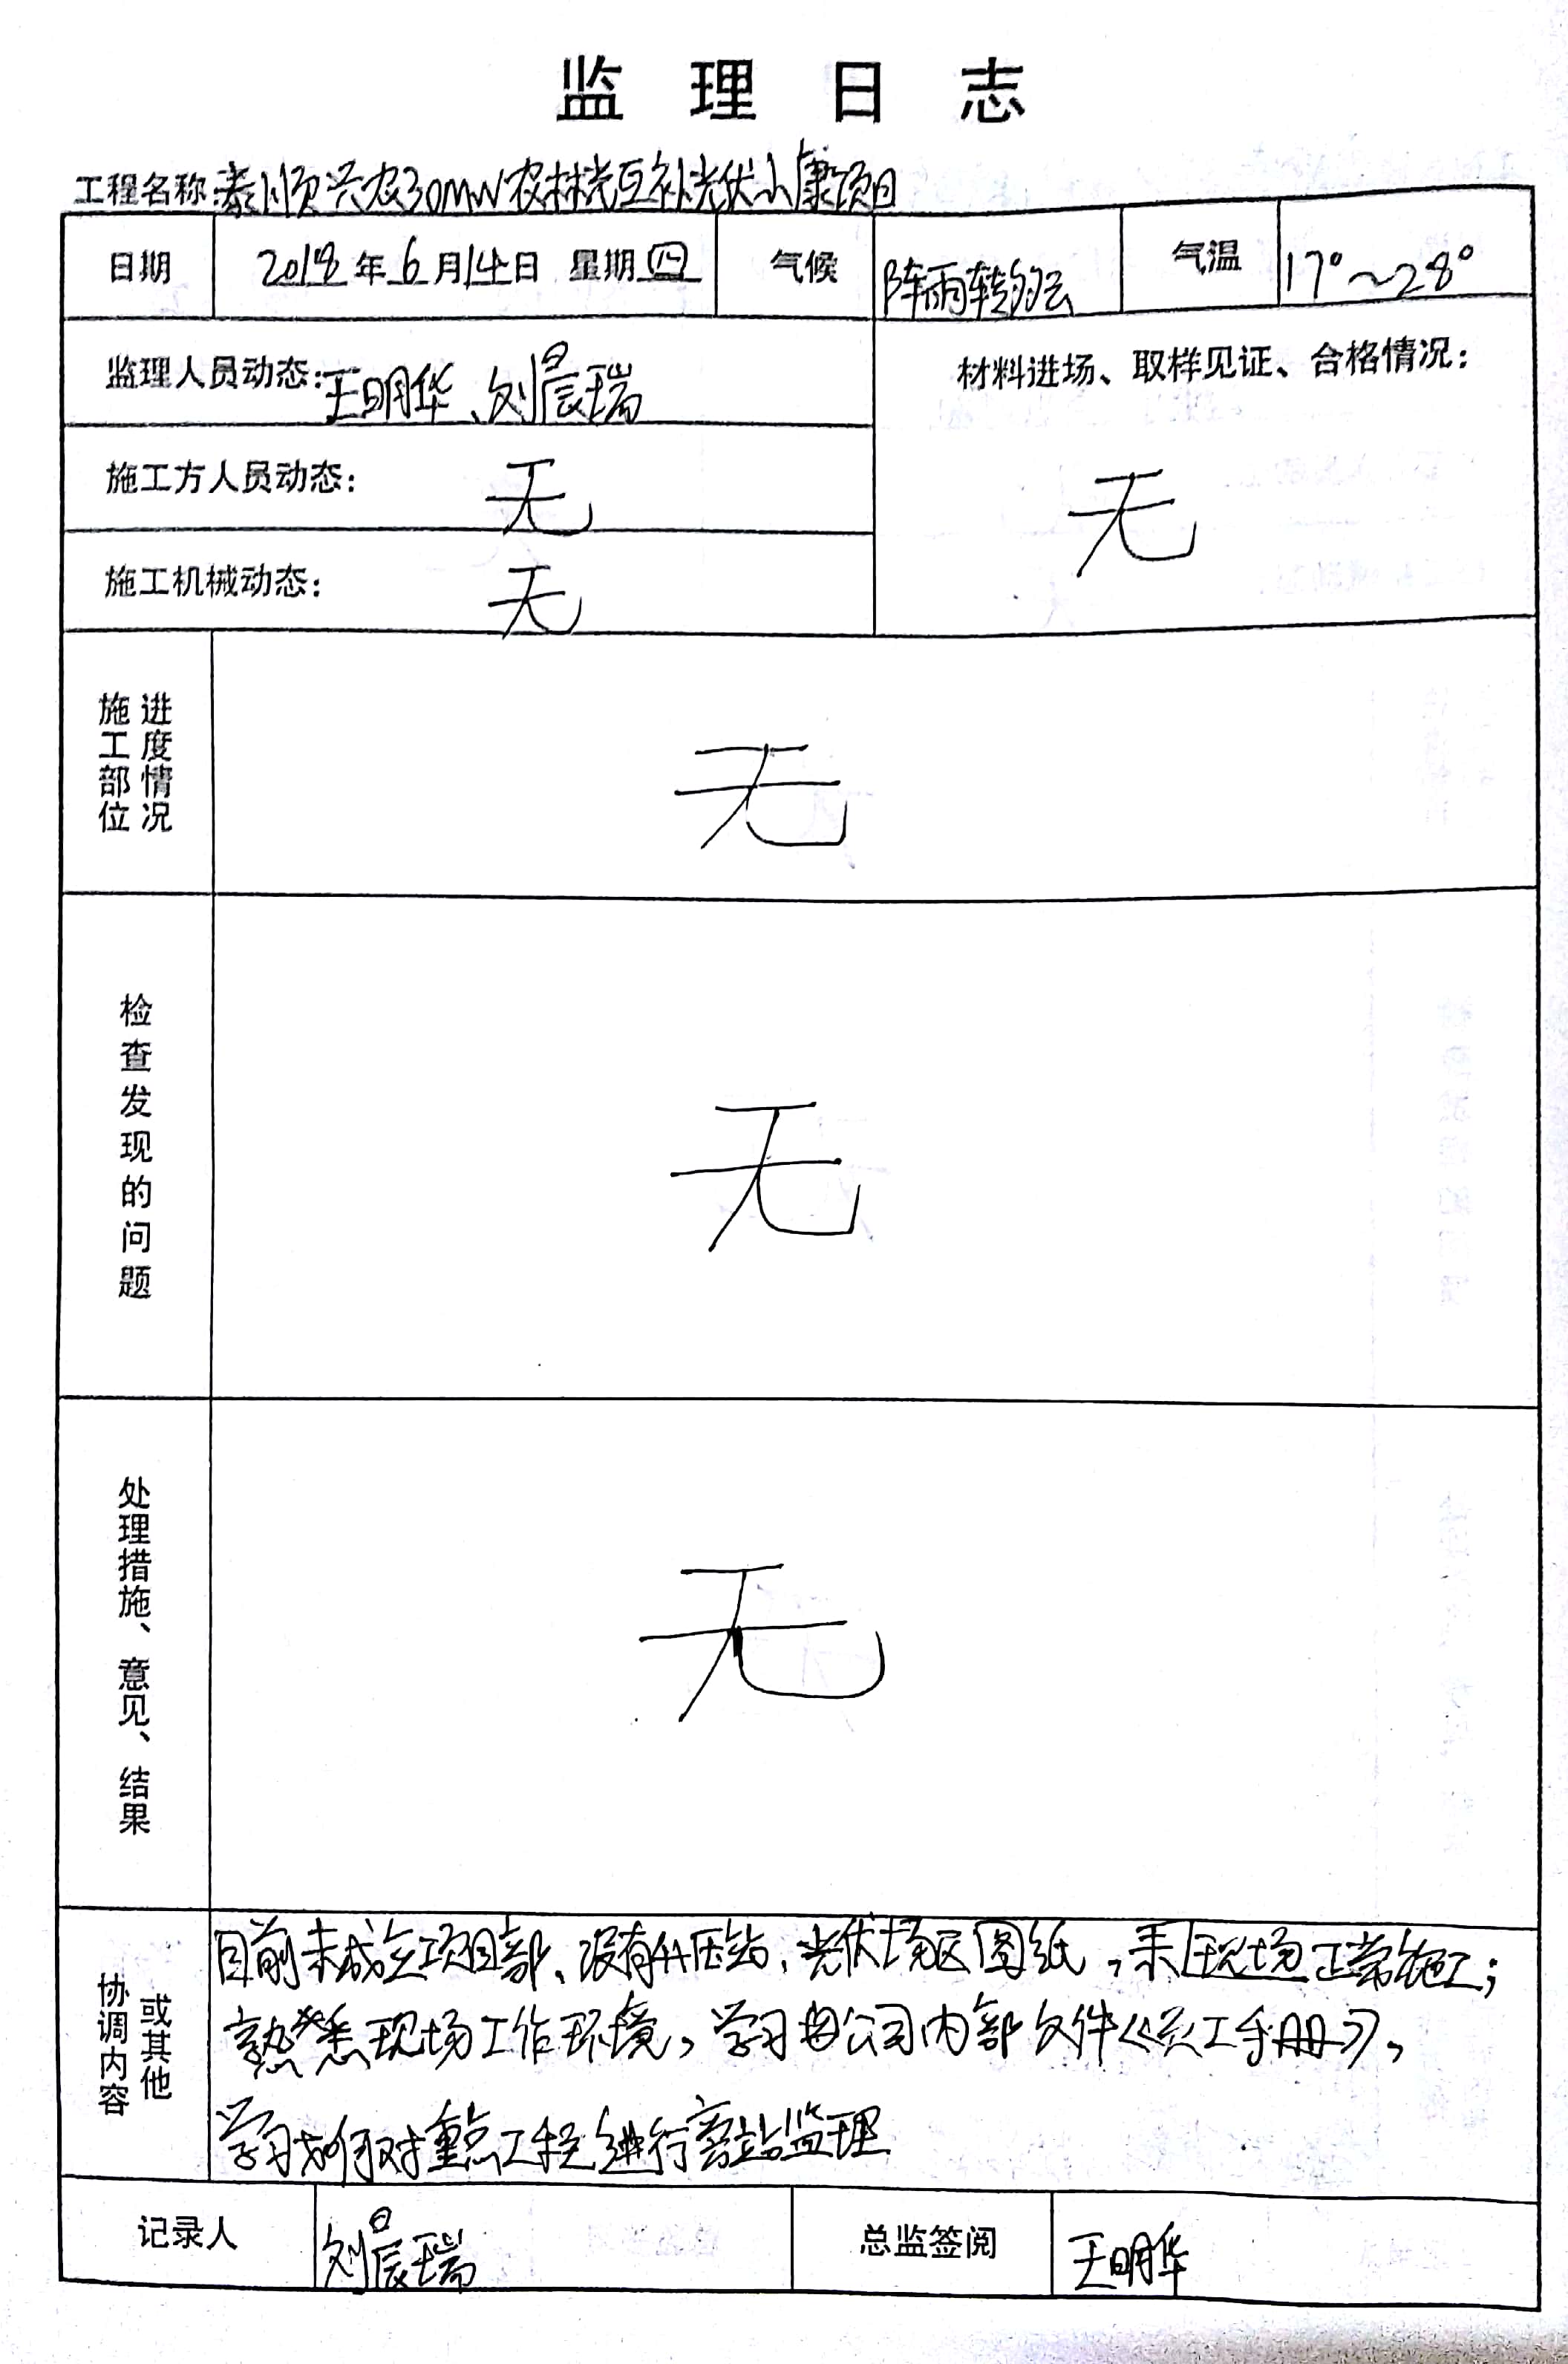 监理日志
工程名称:泰顺兴农30MW农林光互补光伏小康项目
日期 2018年6月14日 星期四 气候 阵雨转多云 气温 17°~28°
监理人员动态:王明华、刘晨瑞
材料进场、取样见证、合格情况:
无
施工方人员动态: 无
施工机械动态: 无
施工部位进度情况 无
检查发现的问题 无
处理措施、意见、结果 无
协调内容或其他
目前未成立项目部、没有升压站、光伏场区图纸,未现场正常施工;
熟悉现场工作环境,学习由公司内部文件《员工手册》,
学习如何对重点工程进行旁站监理
记录人 刘晨瑞 总监签阅 王明华